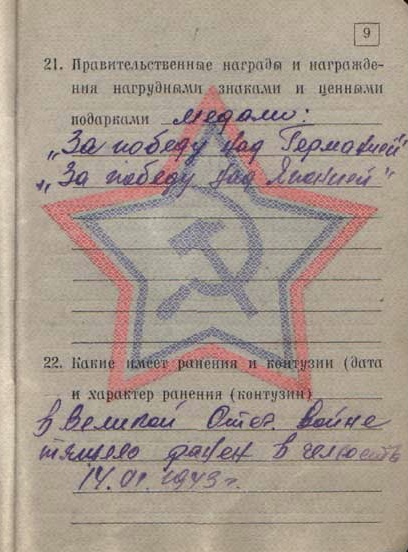 9
21. Правительственные награды и награжде-
ния нагрудными знаками и ценными
подарками медали:
„За победу над Германией"
„За победу над Японией"
22. Какие имеет ранения и контузии (дата
и характер ранения (контузии)
в Великой Отеч. войне
тяжело ранен в челюсть
14.01.1943 г.